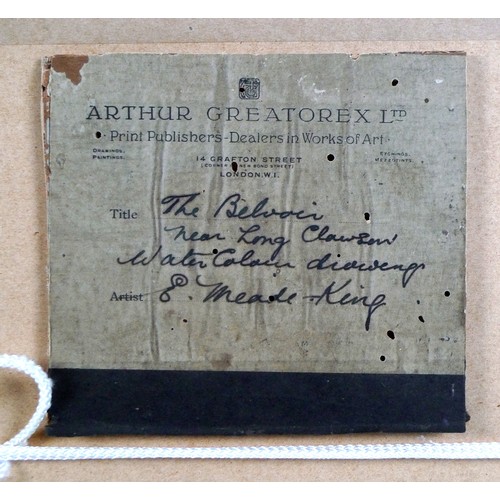 ARTHUR GREATOREX LTD
Print Publishers-Dealers in Works of Art
DRAWINGS, PAINTINGS.
ETCHINGS, MEZZOTINTS.
14 GRAFTON STREET
(CORNER OF NEW BOND STREET)
LONDON.W.1.
Title The Belvoir
near Long Clawson
Water Colour drawing
Artist E. Meade-King